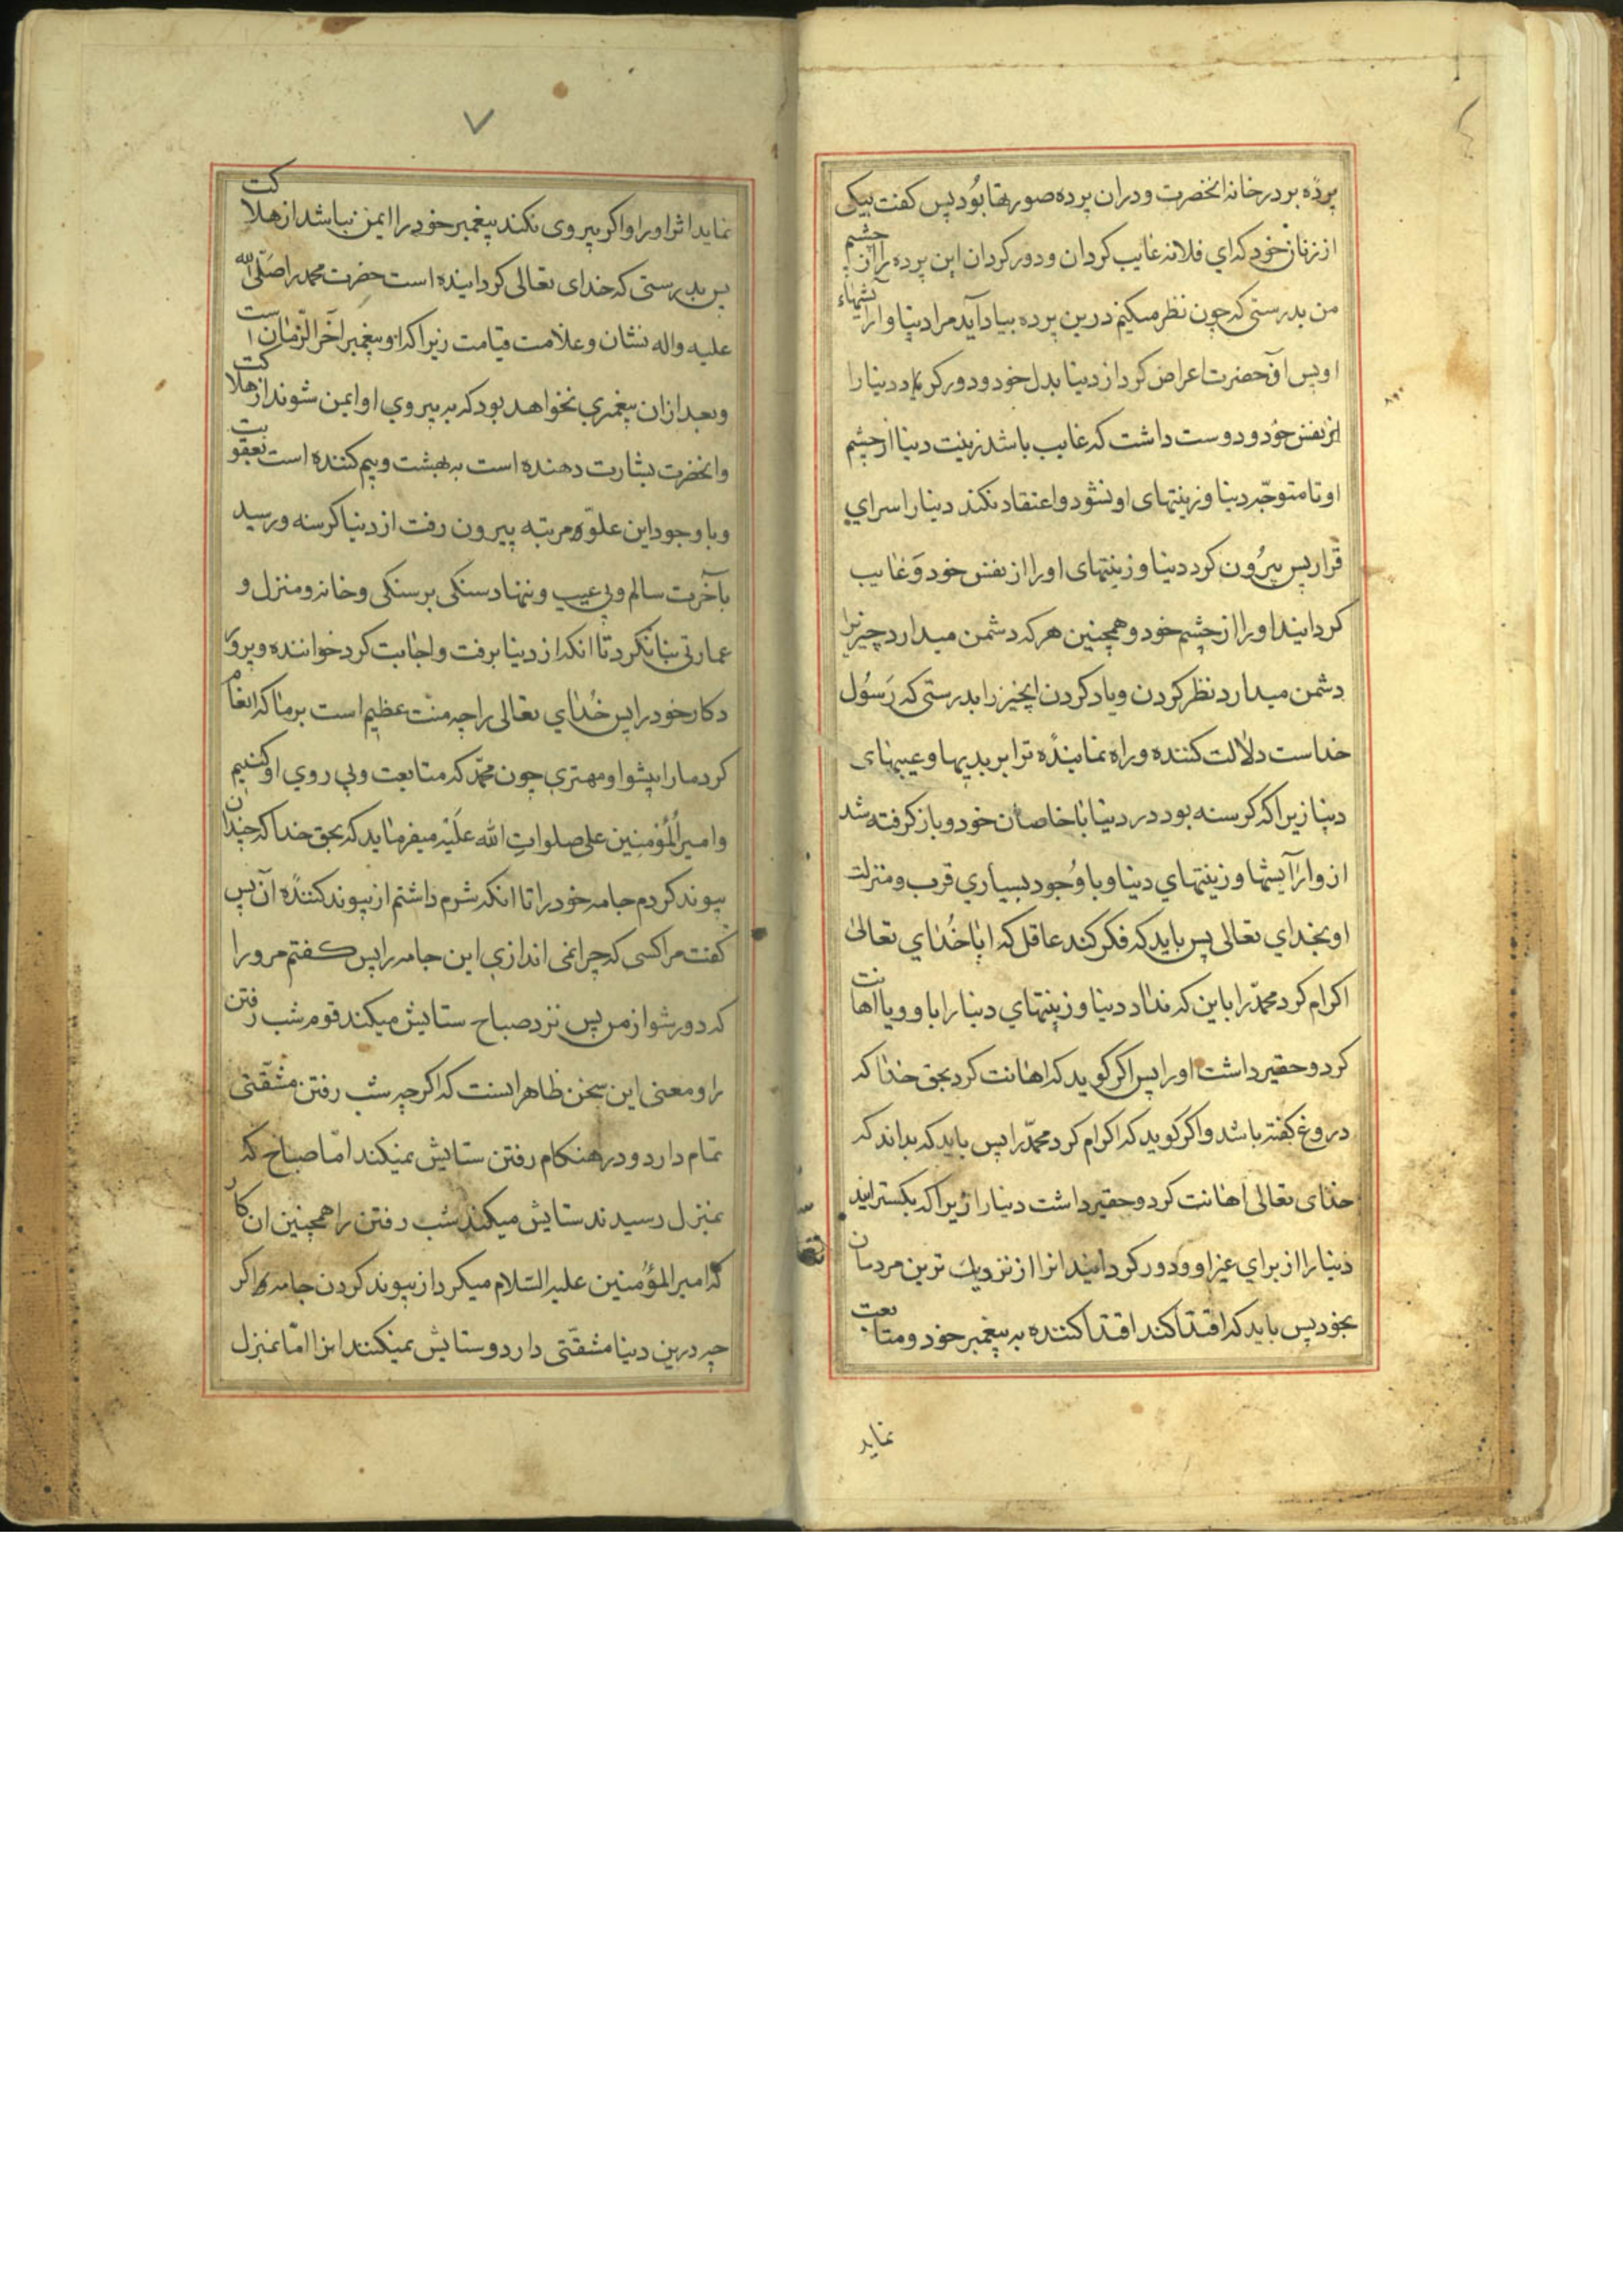 پرده بر در خانه انحضرت و دران پرده صورتها بود پس کفت بیکی
از زنان خود که اي فلانه غایب کردان و دور کردان این پرده را از چشم
من بدرستی که چون نظر میکنم درین پرده بیاد آید مرا دنیا و آرایشهاء
او پس آنحضرت اعراض کرد از دنیا بدل خود و دور کرد یاد دنیا را
از نفس خود و دوست داشت که غایب باشد زینت دنیا از چشم
او تا متوجّه دنیا و زینتهای او نشود و اعتقاد نکند دنیا را سراي
قرار پس بیرُون کرد دنیا و زینتهای او را از نفس خود وَ غایب
کردانید او را از چشم خود و همچنین هر که دشمن میدارد چیزیرا
دشمن میدارد نظر کردن و یاد کردن انچیز را بدرستی که رَسوُل
خداست دلالت کننده و راه نماینده ترا بر بدیها و عیبهای
دنیا زیرا که کرسنه بود در دنیا با خاصان خود و باز کرفته شد
ازو ارآیشها و زینتهاي دنیا و با وُجود بسیاري قرب و منزلت
او بخداي تعالی پس باید که فکر کند عاقل که ایا خُداي تعالیٰ
اکرام کرد محمّد را باین که نداد دنیا و زینتهاي دنیا را باو و یا اهانت
کرد و حقیر داشت او را پس اکر کوید که اهانت کرد بحق خدا که
دروغ کفته باشد و اکر کوید که اکرام کرد محمّد را پس باید که بداند که
خدای تعالی اهانت کرد و حقیر داشت دنیا را زیرا که بکسترانید
دنیا را از براي غیر او و دور کردانید انرا از نزدیك ترین مردمان
بخود پس باید که اقتدا کند اقتدا کننده به پیغمبر خود و متابعت
نماید
۷
نماید اثر او را و اکر پیروی نکند پیغمبر خود را ایمن نباشد از هلاکت
پس بدرستی که خدای تعالی کردانیده است حضرت محمد را صَلّی الله
علیه واله نشان و علامت قیامت زیرا که او پیغمبر آخر الزّمان است
و بعد ازان پیغمبري نخواهد بود که به پیروي او ایمن شوند از هلاکت
وانحضرت بشارت دهنده است به بهشت و بیم کننده است بعقوبت
و با وجود این علوّ مرتبه بیرون رفت از دنیا کرسنه و رسید
بآخرت سالم و بی عیب و ننهاد سنکی بر سنکی و خانه و منزل و
عمارتی بنا نکرد تا انکه از دنیا برفت و اجابت کرد خواننده و پرورَ
دکار خود را پس خُداي تعالی را چه منّت عظیم است بر ما که انعام
کرد ما را پیشوا و مهتري چون محمّد که متابعت و پي روي او کنیم
و امیر المُؤمنین علی صلواتِ الله عَلَیْه میفرماید که بحق خدا که چندان
پیوند کردم جامه خود را تا انکه شرم داشتم از پیوند کننده آن پس
کفت مرا کسی که چرا نمی اندازي این جامه را پس کفتم مر ورا
که دور شو از من پس نزد صباح ستایش میکند قوم شب رفتن
را و معنی این سخن ظاهرا ینست که اکر چه شب رفتن مشقّتی
تمام دارد و در هنکام رفتن ستایش نمیکند امّا صباح که
بمنزل رسیدند ستایش میکند شب رفتن را همچنین ان کار
که امیر المؤمنین علیه السّلام میکرد از پیوند کردن جامه اکر
چه درین دنیا مشقّتی دارد و ستایش نمیکنند انرا امّا بمنزل